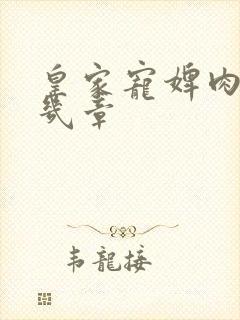 皇家寵婢肉
幾章
韦龍接